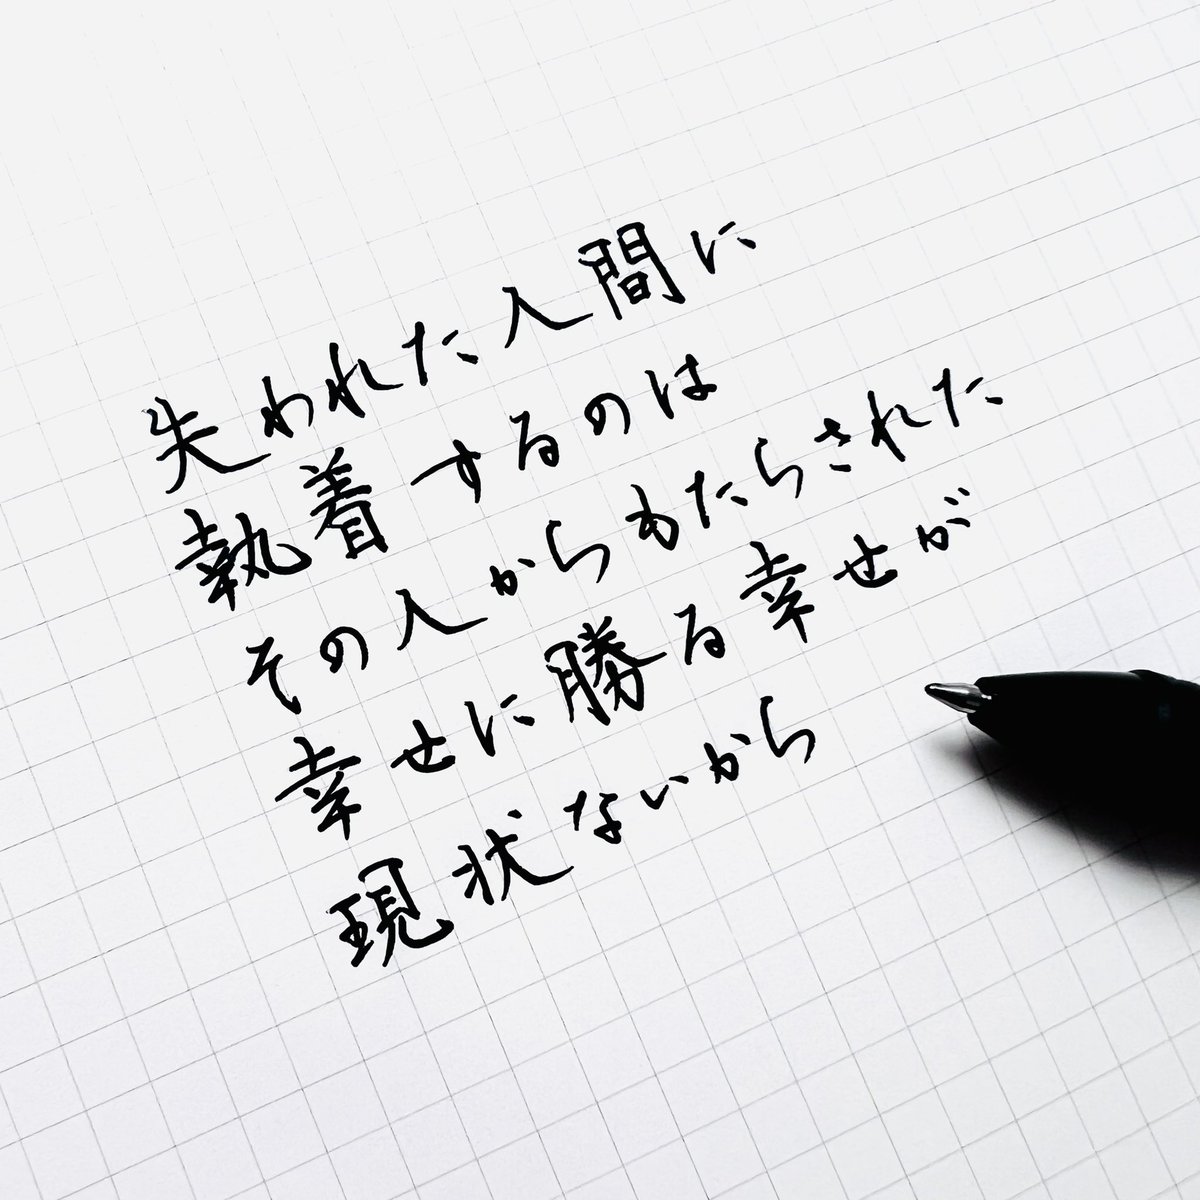 失われた人間に
執着するのは
その人からもたらされた
幸せに勝る幸せが
現状ないから